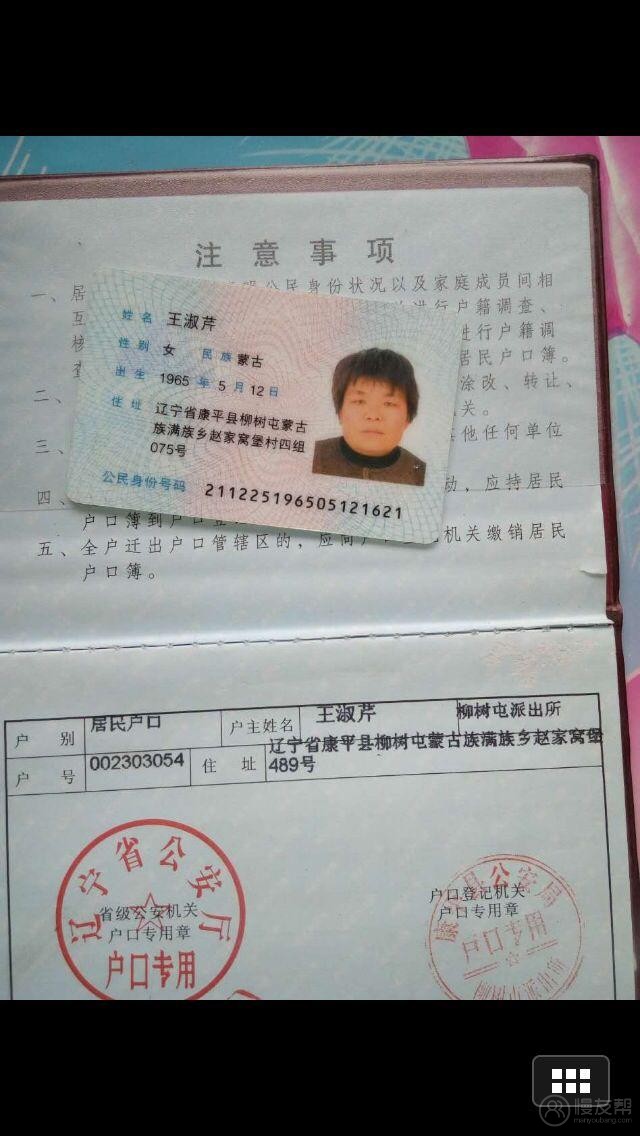 注意事项
一、居 公民身份状况以及家庭成员间相
互 进行户籍调查、
核 进行户籍调
查 居民户口簿。
二、 涂改、转让、
关。
三、 其他任何单位
四、 动，应持居民
户口簿到户口登
五、全户迁出户口管辖区的，应向户 机关缴销居民
户口簿。
姓名 王淑芹
性别 女 民族 蒙古
出生 1965 年 5 月 12 日
住址 辽宁省康平县柳树屯蒙古
族满族乡赵家窝堡村四组
075号
公民身份号码 211225196505121621
户别 居民户口 户主姓名 王淑芹 柳树屯派出所
户号 002303054 住址 辽宁省康平县柳树屯蒙古族满族乡赵家窝堡
489号
辽宁省公安厅
省级公安机关
户口专用章
户口专用
康平县公安局
户口登记机关
户口专用章
户口专用
柳树屯派出所
慢友帮
manyoubang.com